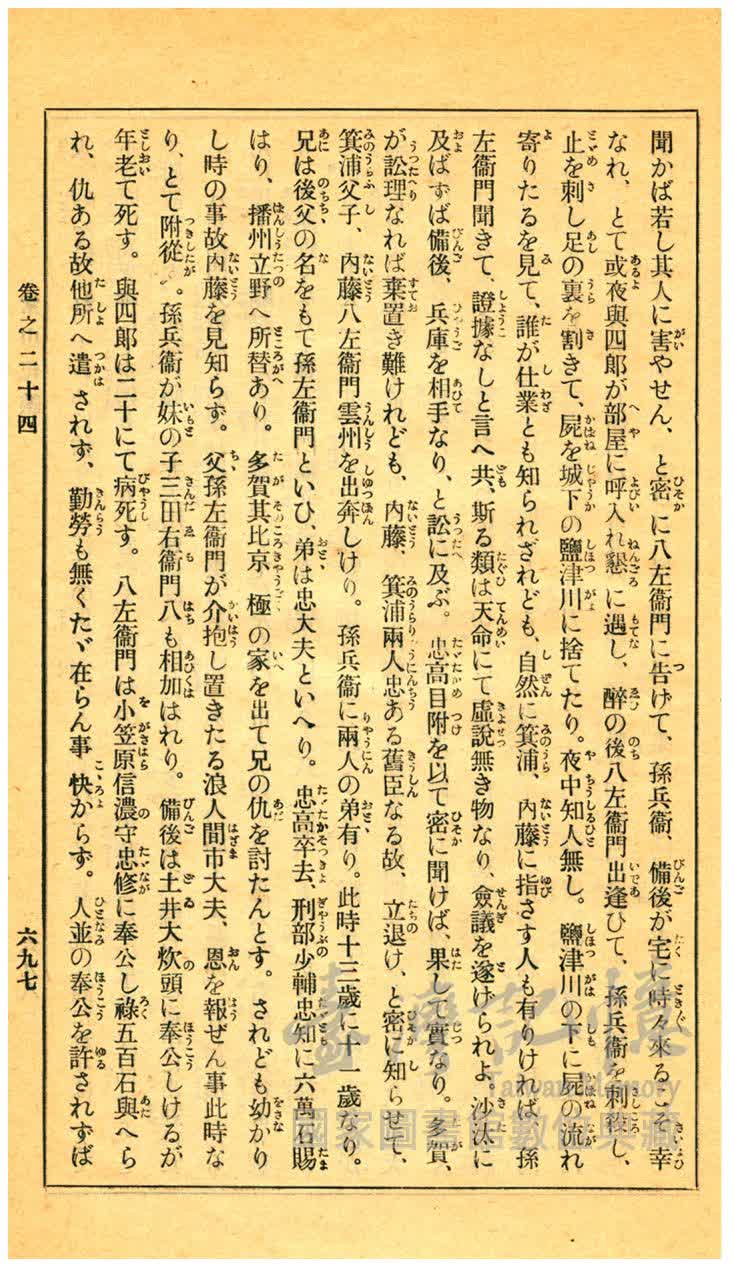 聞かば若し其人に害やせん、と密に八左衞門に告げて、孫兵衞、備後が宅に時々來るこそ幸
なれ、とて或夜與四郎が部屋に呼入れ懇に遇し、醉の後八左衞門出逢ひて、孫兵衞を刺殺し、
止を刺し足の裏を割きて、屍を城下の鹽津川に捨てたり。夜中知人無し。鹽津川の下に屍の流れ
寄りたるを見て、誰が仕業とも知られざれども、自然に箕浦、內藤に指さす人も有りければ、孫
左衞門聞きて、證據なしと言へ共、斯る類は天命にて虛說無き物なり、僉議を遂げられよ。沙汰に
及ばずば備後、兵庫を相手なり、と訟に及ぶ。忠高目附を以て密に聞けば、果して實なり。多賀、
が訟理なれば棄置き難けれども、內藤、箕浦兩人忠ある舊臣なる故、立退け、と密に知らせて、
箕浦父子、內藤八左衞門雲州を出奔しけり。孫兵衞に兩人の弟有り。此時十三歲に十一歲なり。
兄は後父の名をもて孫左衞門といひ、弟は忠大夫といへり。忠高卒去、刑部少輔忠知に六萬石賜
はり、播州立野へ所替あり。多賀其比京極の家を出て兄の仇を討たんとす。されども幼かり
し時の事故內藤を見知らず。父孫左衞門が介抱し置きたる浪人間市大夫、恩を報ぜん事此時な
り、とて附從ふ。孫兵衞が妹の子三田右衞門八も相加はれり。備後は土井大炊頭に奉公しけるが
年老て死す。與四郎は二十にて病死す。八左衞門は小笠原信濃守忠修に奉公し祿五百石與へら
れ、仇ある故他所へ遣されず、勤勞も無くたゞ在らん事快からず。人並の奉公を許されずば
卷之二十四
六九七
臺灣記憶
Taiwan Memory
國家圖書館數位典藏